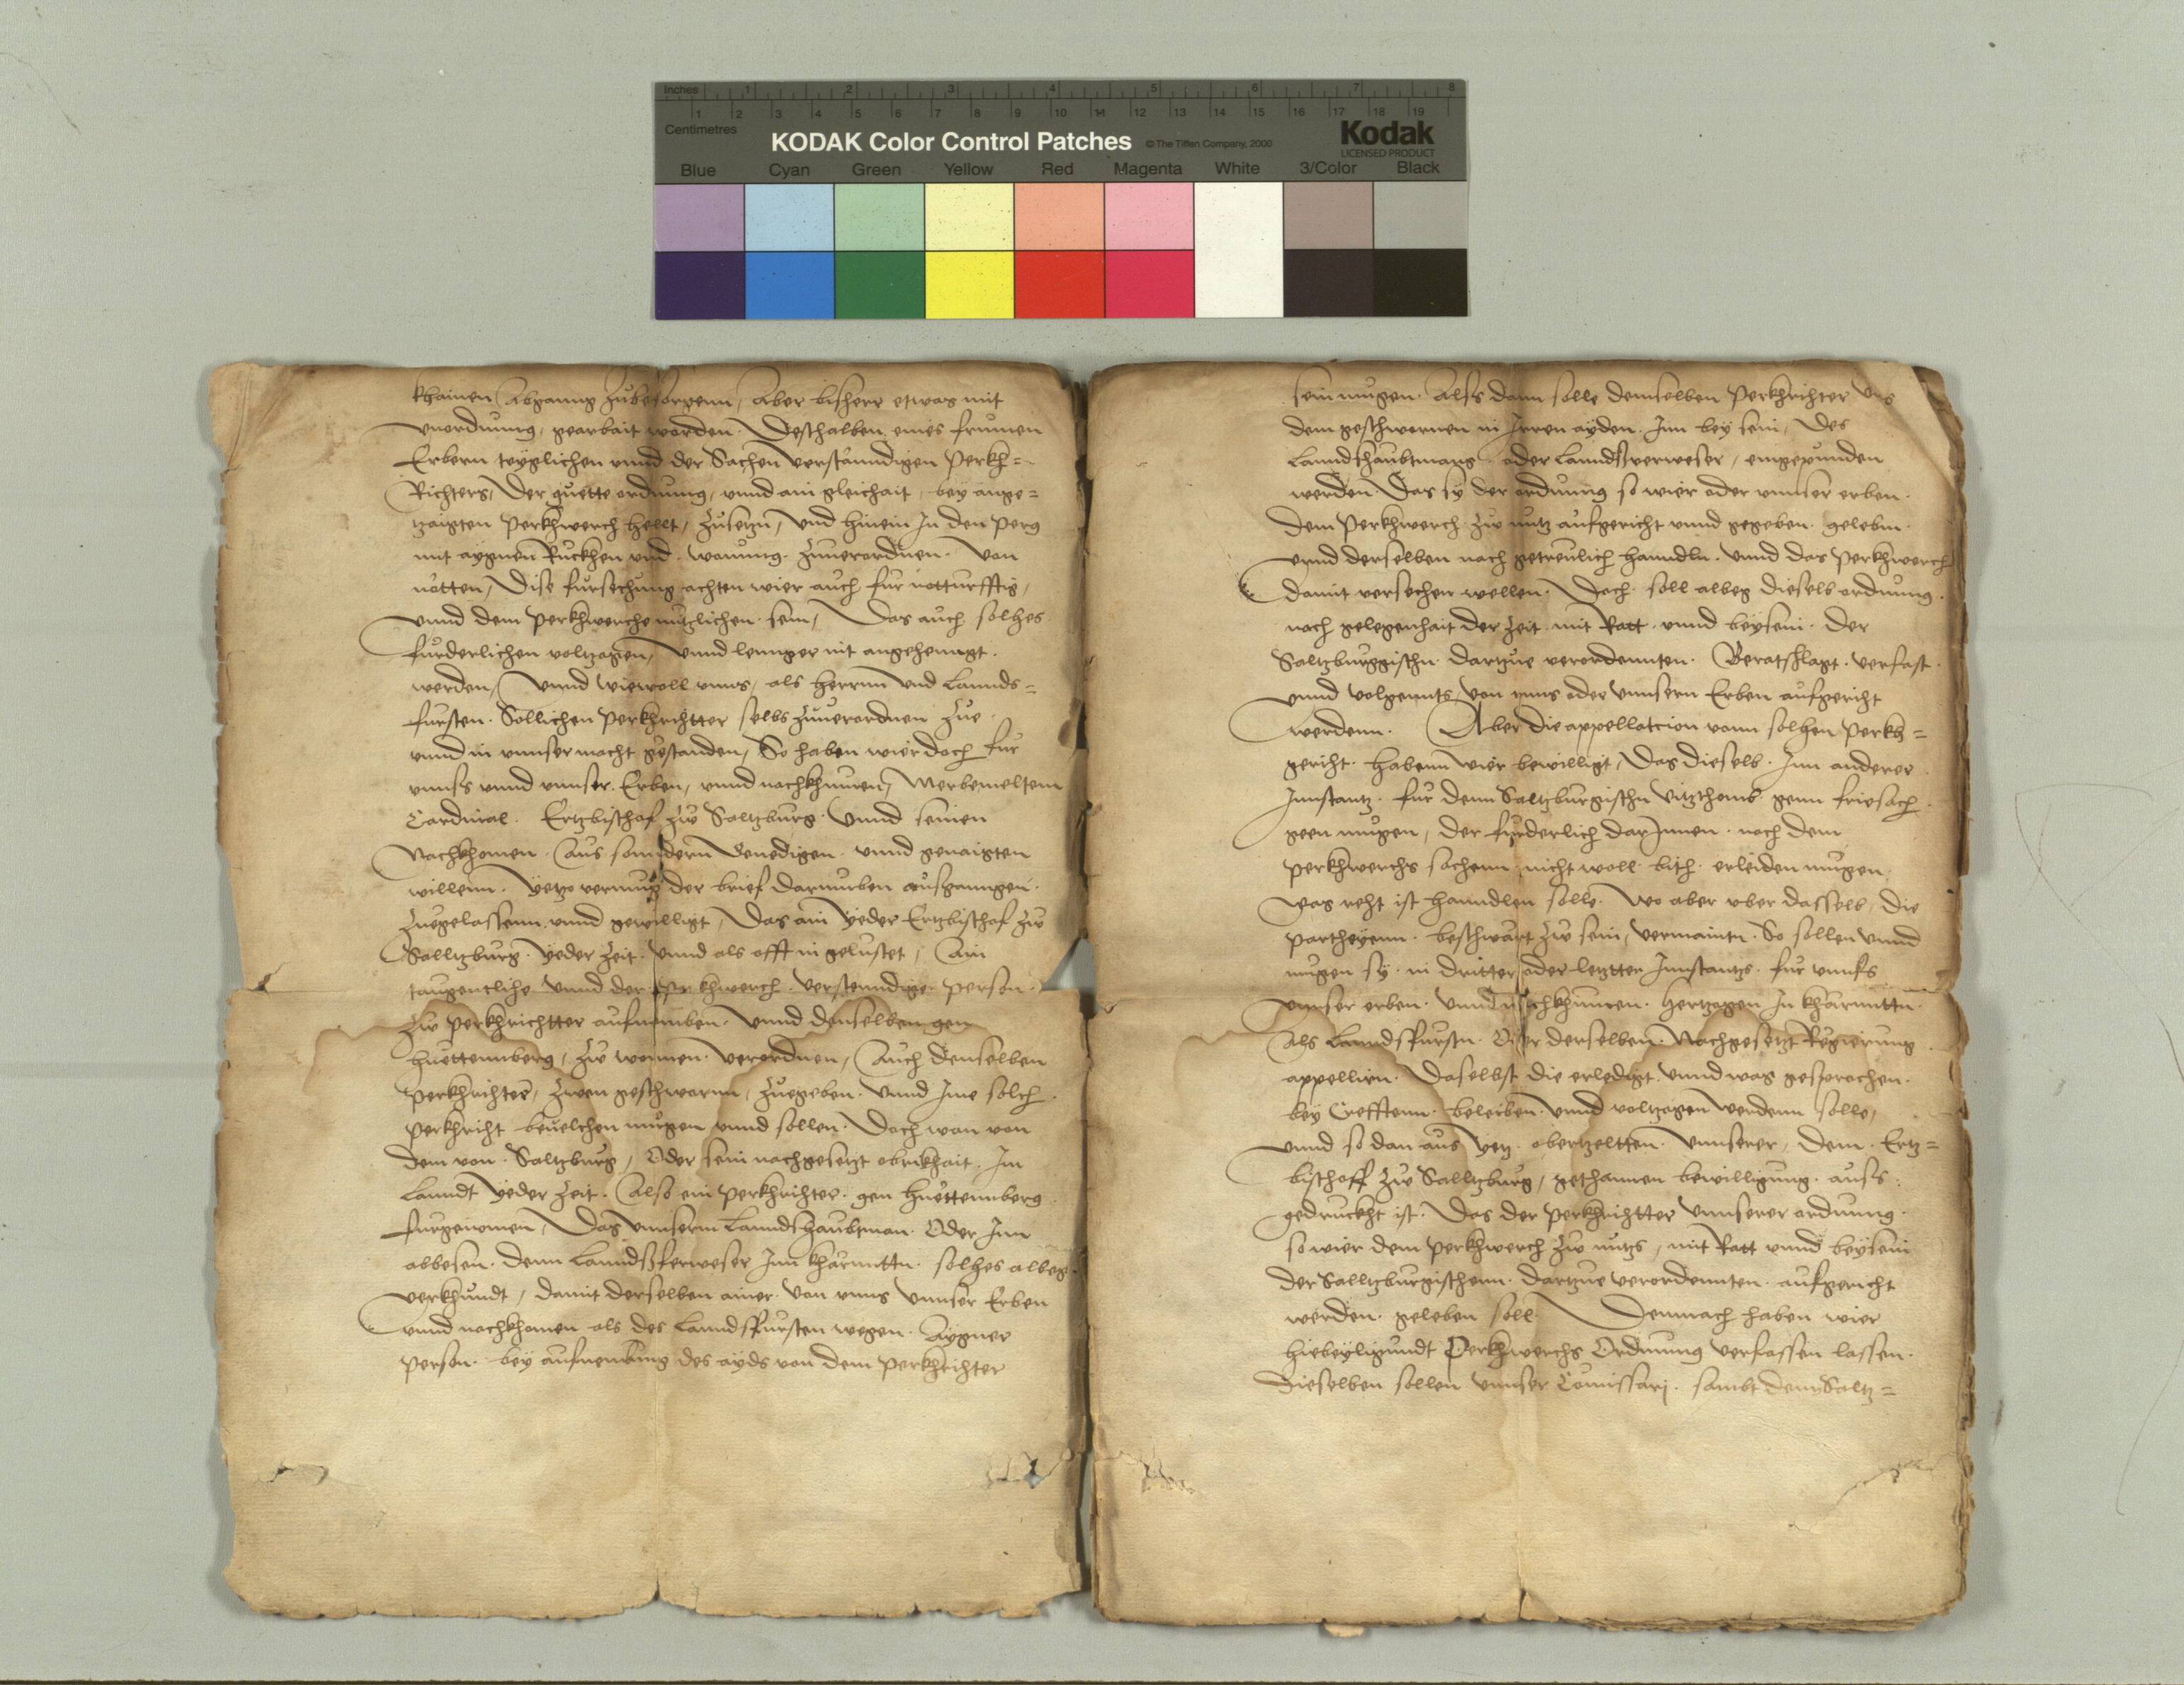 Inches 1 2 3 4 5 6 7 8
1 2 3 4 5 6 7 8 9 10 11 12 13 14 15 16 17 18 19
Centimetres
KODAK Color Control Patches © The Tiffen Company, 2000 Kodak
LICENSED PRODUCT
Blue Cyan Green Yellow Red Magenta White 3/Color Black
khainen Abganng zubesorgenn, Aber bisherr etwas mit
vnordnung, gearbait worden. Deshalben eines frumen
Erbern teyglichen vnnd der Sachen verstanndigen Perkh=
Richters, Der guette ordnung, vnnd ain gleichait, bey ange=
tzaigten Perkhwerch hellt, zusetzn, vnd hinein In den Perg
mit aygnen Ruckhen vnd. wonung. zuuerordnen. von
nötten, Dise fürsechung achten wier auch für notturfftig,
vnnd dem Perkhwerche nutzlichen. sein, Das auch solhes
fürderlichen voltzogen, vnnd lennger nit angehenngt.
werden, vnnd wiewoll vnns, als herrnn vnd Lannds=
fürsten. Sollichen Perkhrichtter selbs zuuerordnen zue
vnnd in vnnser macht gestanden, So haben wier doch für
vnnss vnnd vnnser. Erben, vnnd nachkhumen, Merbemeltem
Cardinal. Ertzbischof zw Saltzburg. vnnd seinen
Nachkhomen. Aus sonndern genedigen. vnnd genaigten
willenn. yetzo vermug der brief darumben ausganngen.
zuegelassenn vnnd gewilligt, Das ain yeder Ertzbischof zw
Salltzburg. yeder zeit. vnnd als offt in gelustet, Ain
taugentlihe vnnd der Perkhwerch. verstenndige. person.
zw Perkhrichtter aufnemben. vnnd denselben gen
huettennberg, zw wonnen. verordnen, Auch denselben
Perkhrichter, zwen geschwornn, zuegeben. vnnd Ime solch.
Perkhriht beuelchen mügen vnnd sollen. Doch wan von
dem von. Saltzburg, Oder sein nachgesetzt obrikhait. Im
Lanndt yeder zeit. Also ein Perkhrihter. gen huettennberg
fürgenomen, Das vnnserm Lanndshaubtman. Oder Inn
abbesen. denn Lanndssferweser Inn khärnnttn. solhes albeg.
verkhundt, damit derselben ainer. von vnns vnnser Erben
vnnd nachkhomen als des Lanndsfürsten wegen. Aygner
person. bey aufnembung des ayds von dem Perkhrihter
sein mugen. Alss dann solle demselben Perkhrichter vns
dem geschwornen in Irren ayden. Inn bey sein, des
Lanndshaubtmans oder Lanndssverweser, eingepunden
werden. Das sy der ordnung so wier oder vnnser erben.
dem Perkhwerch zw nutz aufgericht vnnd gegeben. gelebm.
vnnd derselben nach getreulich hanndln. vnnd das Perkhwerch
damit versechen wellen. Doch. soll albeg dieselb ordnung.
nach gelegenhait der zeit. mit Ratt. vnnd beysein. der
Saltzburgischn. dartzue verordennten. Beratschlagt. verfast.
vnnd volgennts, von vnns oder vnnsern Erben aufgericht
werdenn. Aber die appellatcion vonn solhen Perkh=
geriht. habenn wier bewilligt, Das dieselb. Inn anderer
Innstantz. für denn Saltzburgischn Vitzthomb. genn friesach.
geen mugen, der fürderlich dar Innen. nach dem
Perkhwerchs sachenn nicht woll. erleiden mugen
was reht ist hanndlen solle. wo aber vber dasselb, die
partheyenn. beschwärt zw sein, vermaintn. So sollen vnnd
mugen sy. in dritter oder letzter Innstantz. für vnnss
vnnser erben. vnnd nachkhumen. hertzogen In kharnnttn.
Als Lanndsfurstn. Oder derselben. Nachgesetzt Regierung
appellirn. Daselbst die erledigt. vnnd was gesprochen.
bey Crefftenn. beleiben. vnnd voltzogen werdenn solle,
vnnd so dan aus yetz. obertzeltten. vnnserer, dem. Ertz=
bischoff zw Salltzburg, gethannen bewilligung. auss.
gedruckht ist. Das der Perkhrichtter vnnserer ordnung.
so wier dem Perkhwerch zw nutz, mit Ratt vnnd beysein
der Salltzburgischenn. dartzue verordennten. aufgericht
werden. geleben soll. Demnach haben wier
hiebeyligundt Perkhwerchs Ordnung verfassen lassen.
Dieselben sollen vnnser Comissarj. sambt denn Saltz=